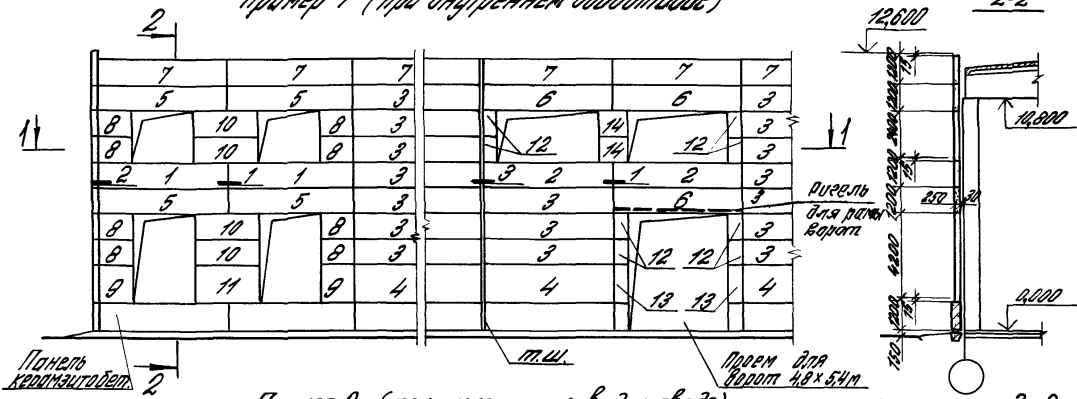 Пример 1 (при внутреннем водоотводе)
2-2
2
12,600
7 7 7 7 7 7
5 5 3 6 6 3
8 10 8 3 14 3
8 10 8 3 12 14 12 3
1 1
2 1 1 1 3 3 2 1 2 3
5 5 3 3 6 3
Ригель
для рамы
ворот
8 10 8 3 3 3
8 10 8 3 3 12 12 3
9 11 9 4 4 13 13 4
Панель
керамзитобет.
2
т.ш.
Проем для
ворот 4,8 × 5,4 м
15
10,800
1200
15
250 30
1200
4200
1200
15
150
0,000